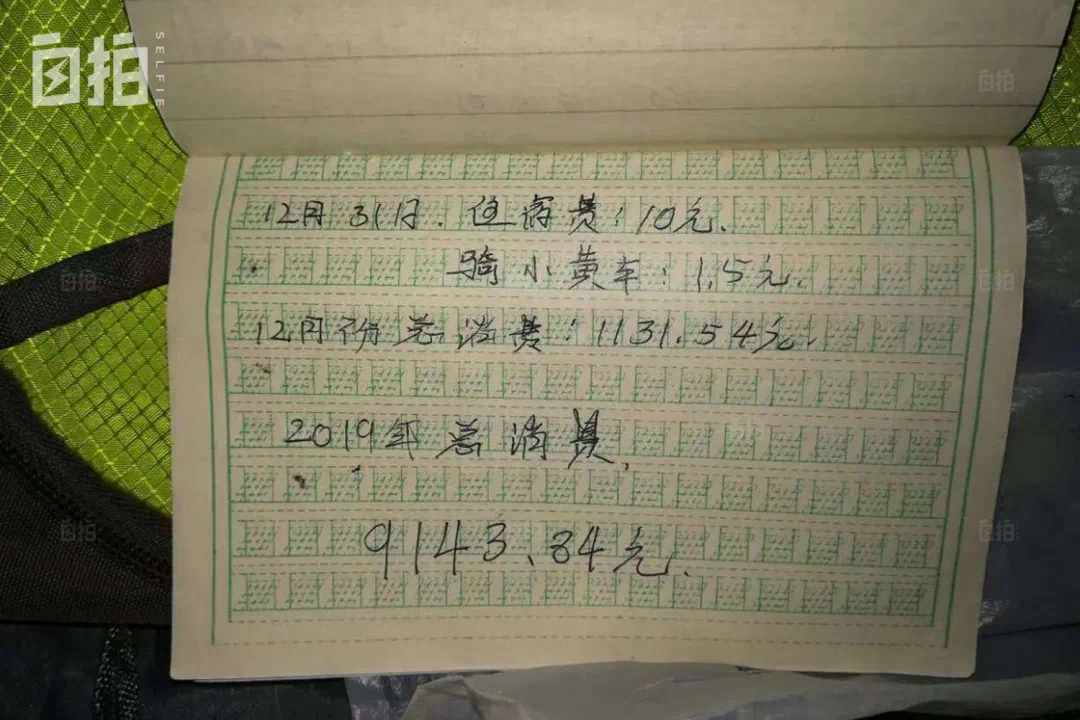 自拍
SELFIE
自拍
12月31日.住宿费:10元.
骑小黄车:1.5元.
自拍
自拍
12月份总消费:1131.54元.
2019年总消费.
9143.84元.
自拍
自拍